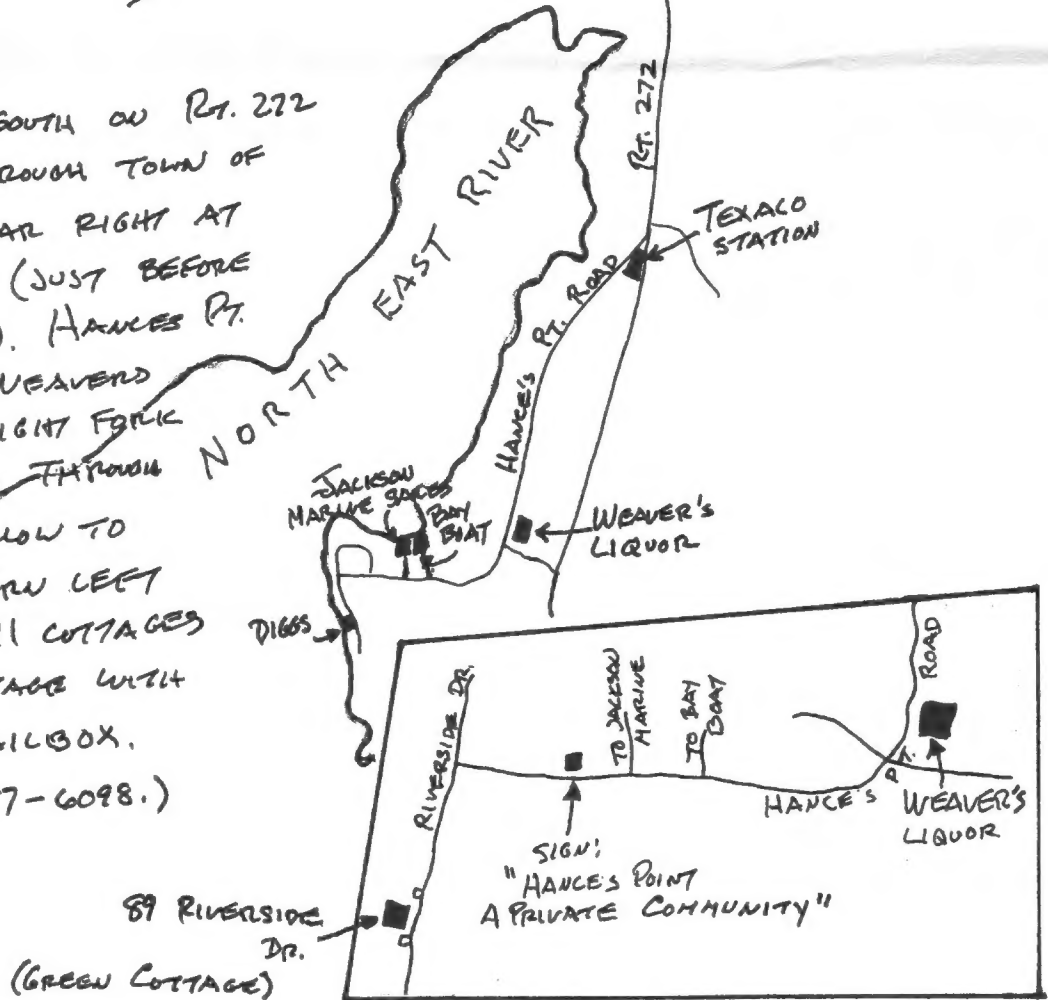 SOUTH ON RT. 272
ROUGH TOWN OF
AR RIGHT AT
(JUST BEFORE
). HANCES PT.
WEAVERD
IGHT FORK
THROUGH
LOW TO
RN LEFT
COTTAGES
TAGE WITH
ILBOX.
7-6098.)
NORTH EAST RIVER
RT. 272
TEXACO
STATION
HANCE'S PT. ROAD
JACKSON
MARINE SALES
BAY
BOAT
WEAVER'S
LIQUOR
DIGGS
RIVERSIDE DR.
TO JACKSON
MARINE
TO BAY
BOAT
HANCE'S PT. ROAD
WEAVER'S
LIQUOR
SIGN:
"HANCE'S POINT
A PRIVATE COMMUNITY"
89 RIVERSIDE
DR.
(GREEN COTTAGE)